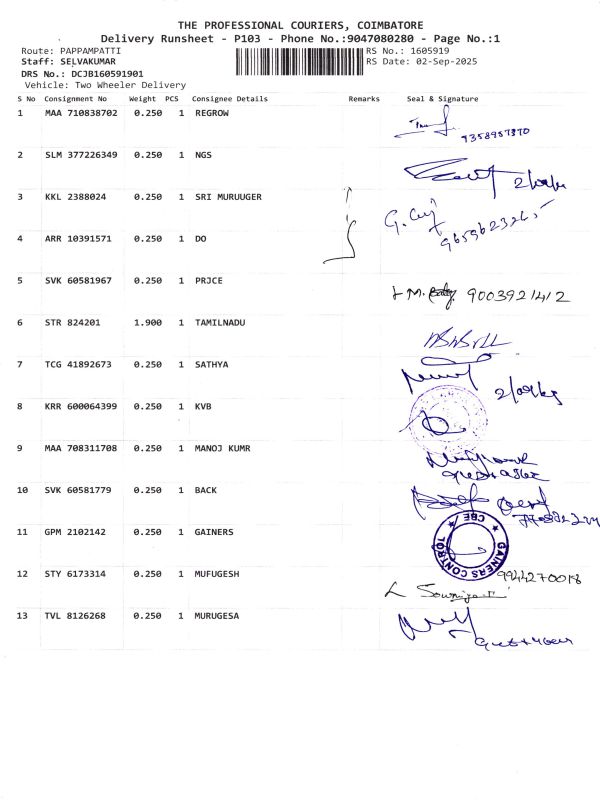 THE PROFESSIONAL COURIERS, COIMBATORE
Delivery Runsheet - P103 - Phone No.:9047080280 - Page No.:1
Route: PAPPAMPATTI RS No.: 1605919
Staff: SELVAKUMAR RS Date: 02-Sep-2025
DRS No.: DCJB160591901
Vehicle: Two Wheeler Delivery
S No Consignment No Weight PCS Consignee Details Remarks Seal & Signature
1 MAA 710838702 0.250 1 REGROW
9358957370
2 SLM 377226349 0.250 1 NGS
3 KKL 2388024 0.250 1 SRI MURUUGER
4 ARR 10391571 0.250 1 DO
5 SVK 60581967 0.250 1 PRJCE
9003921412
6 STR 824201 1.900 1 TAMILNADU
7 TCG 41892673 0.250 1 SATHYA
8 KRR 600064399 0.250 1 KVB
9 MAA 708311708 0.250 1 MANOJ KUMR
10 SVK 60581779 0.250 1 BACK
11 GPM 2102142 0.250 1 GAINERS
GAINERS CONTROL
CBE
12 STY 6173314 0.250 1 MUFUGESH
9944270018
13 TVL 8126268 0.250 1 MURUGESA